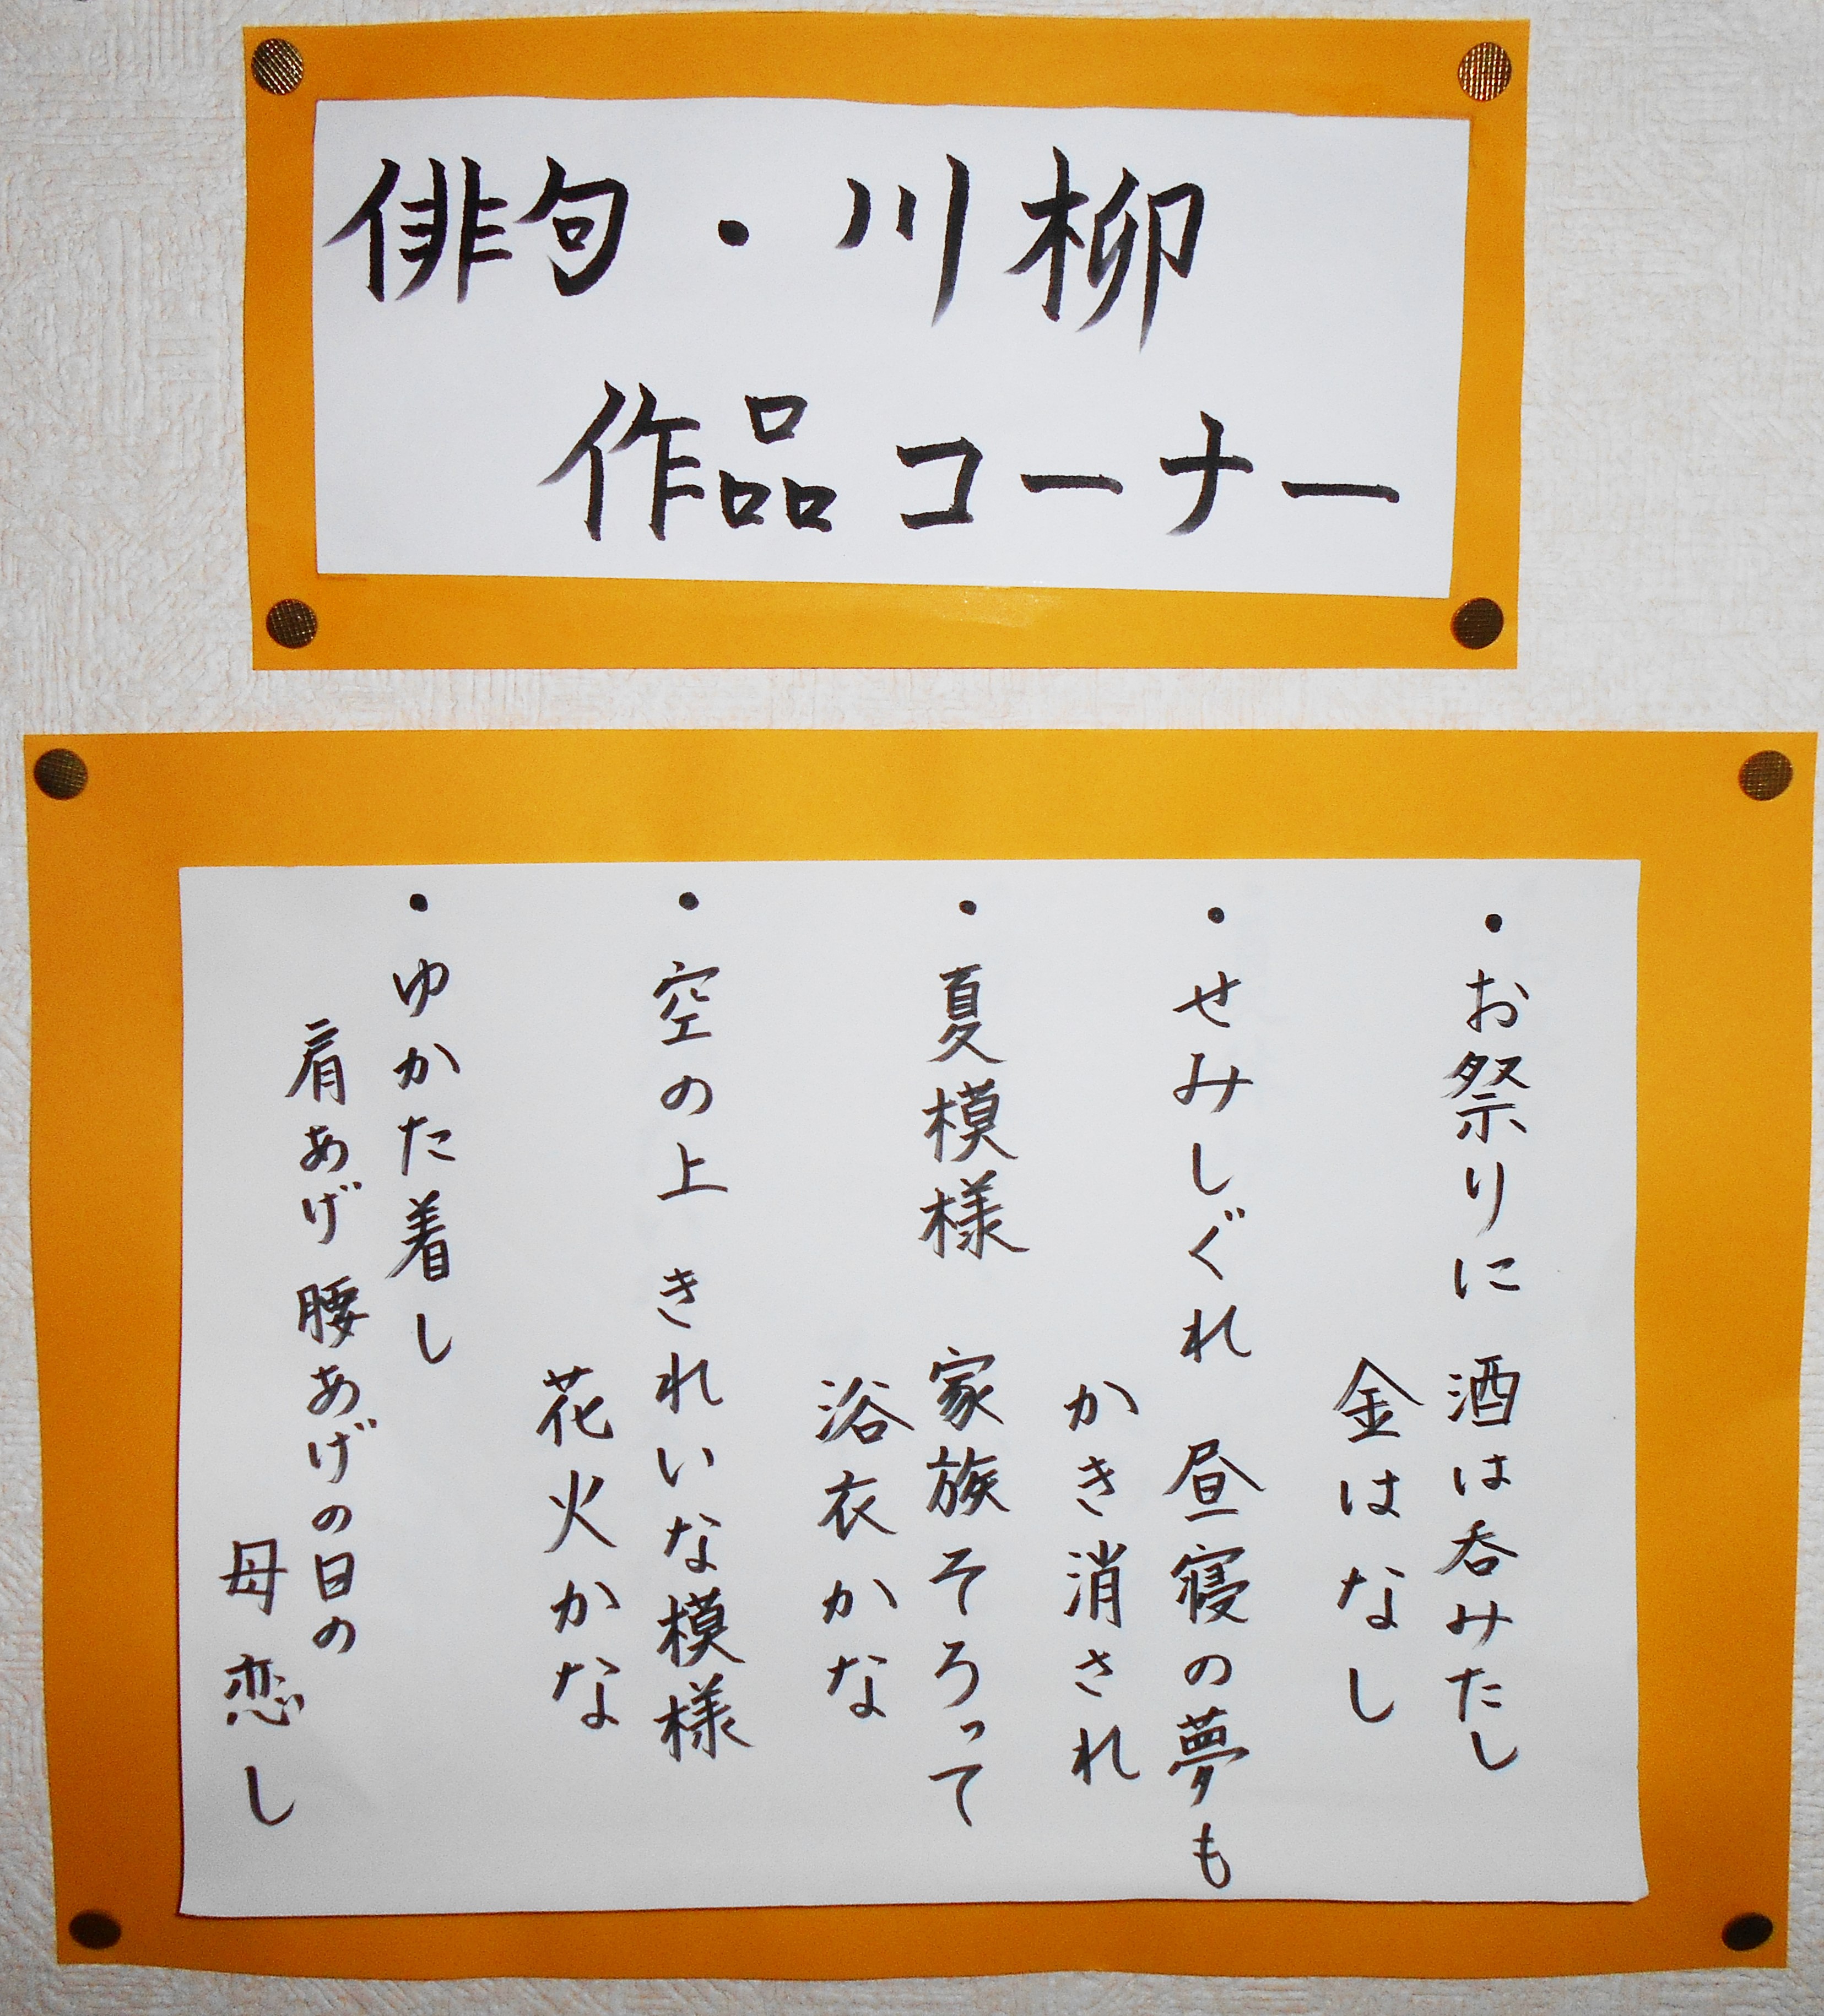 俳句・川柳
作品コーナー
・お祭りに 酒は呑みたし
金はなし
・せみしぐれ 昼寝の夢も
かき消され
・夏模様 家族そろって
浴衣かな
・空の上 きれいな模様
花火かな
・ゆかた着し
肩あげ腰あげの日の
母恋し